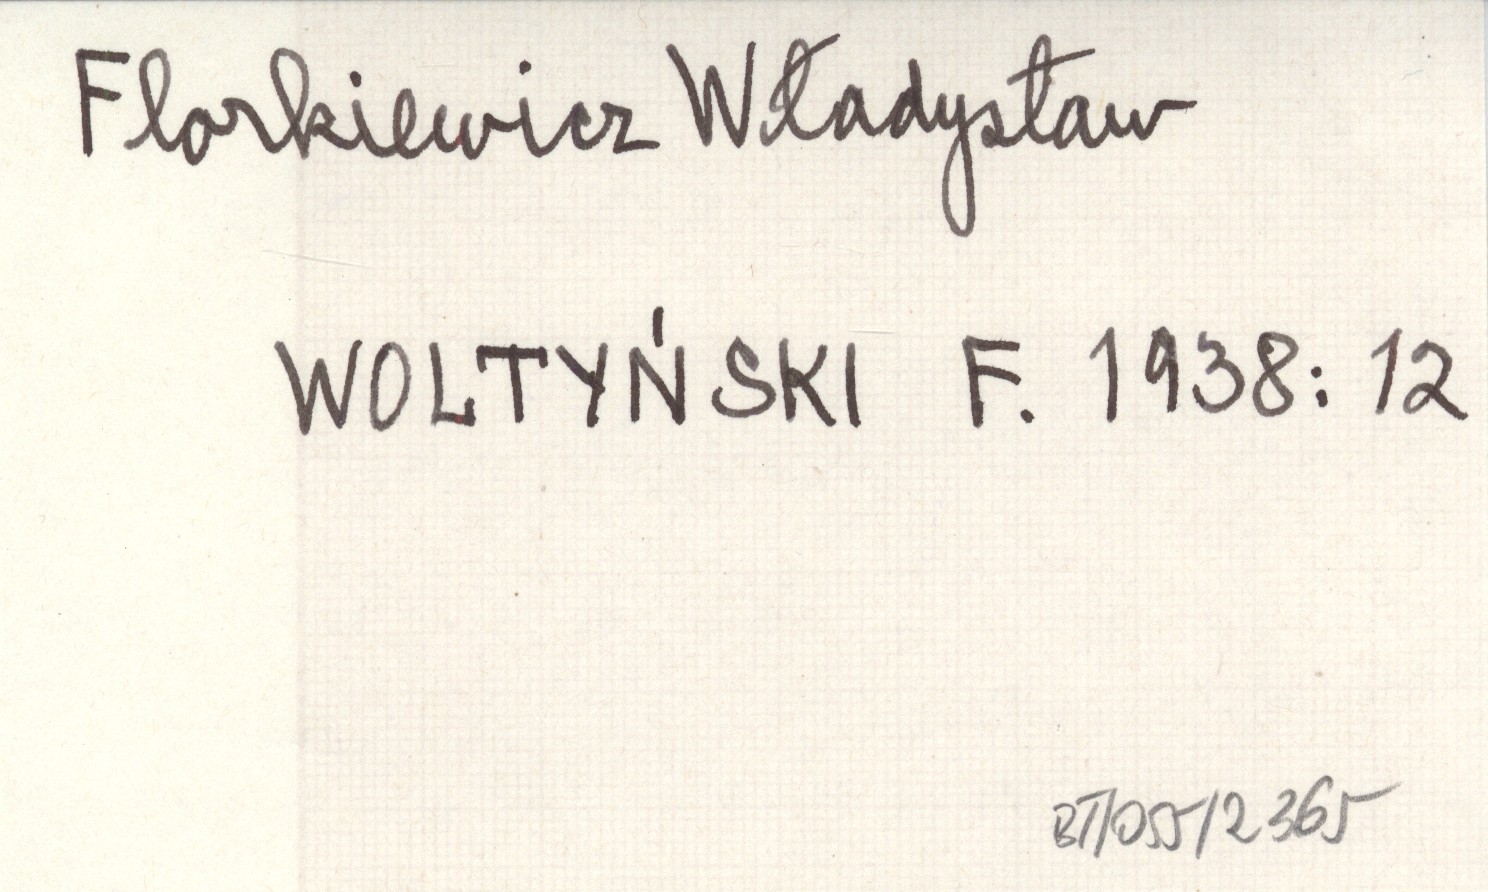 Florkiewicz Władysław
WOLTYŃSKI F. 1938: 12
BT/055/2365